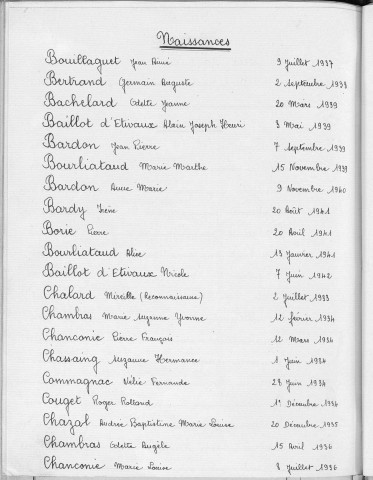 Naissances
Bouillaguet Jean Aimé 9 Juillet 1937
Bertrand Germain Auguste 2 Septembre 1938
Bachelard Odette Jeanne 20 Mars 1939
Baillot d'Etivaux Alain Joseph Henri 8 Mai 1939
Bardon Jean Pierre 7 Septembre 1939
Bourliataud Marie Marthe 15 Novembre 1939
Bardon Anne Marie 9 Novembre 1940
Bardy Irène 20 Août 1941
Borie Pierre 20 Avril 1941
Bourliataud Aline 13 Janvier 1941
Baillot d'Etivaux Nicole 7 Juin 1942
Chalard Mireille (Reconnaissance) 2 Juillet 1933
Chambras Marie Suzanne Yvonne 12 février 1934
Chanconie Pierre François 12 Mars 1934
Chassaing Suzanne Hermance 1 Juin 1934
Commagnac Nélie Fernande 28 Juin 1934
Couget Roger Rolland 1er Décembre 1934
Chazal Andrée Baptistine Marie Louise 20 Décembre 1935
Chambras Odette Angèle 15 Avril 1936
Chanconie Marie Louise 8 Juillet 1936